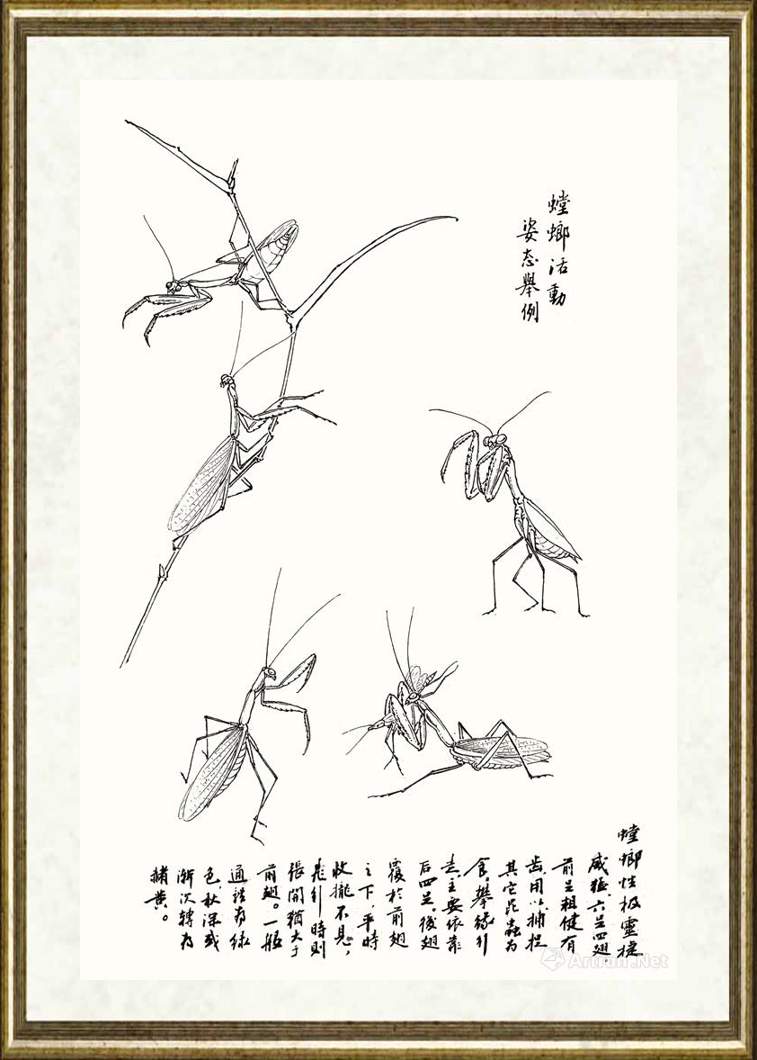 螳螂活動
姿态舉例
螳螂性极靈捷
威猛六足四翅
前足粗健有
齿用以捕捉
其它昆虫为
食。攀缘引
走主要依靠
后四足。後翅
覆於前翅
之下，平時
收攏不見，
飛引時則
張開猶大于
前翅。一般
通諸为绿
色，秋深或
漸次轉为
赭黄。
Artron.Net